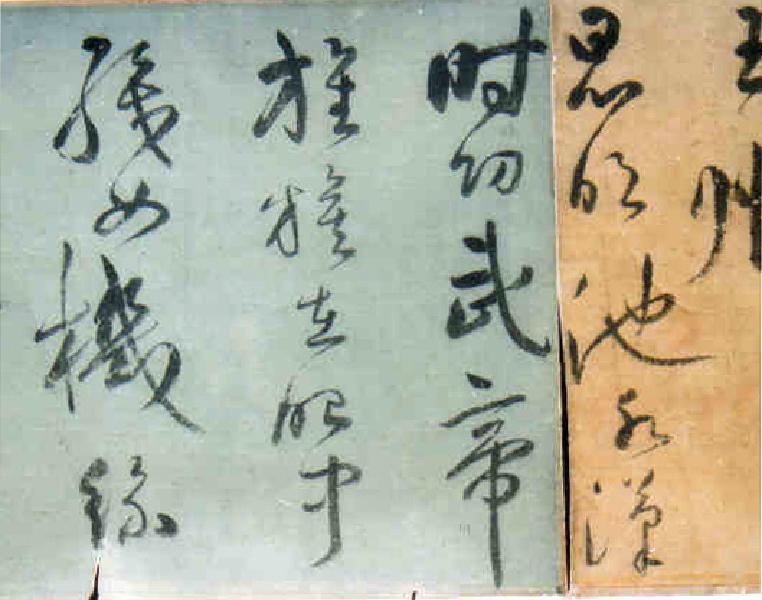 王州
昆明池水漢
时功武帝
旌旗在眼中
織女機絲